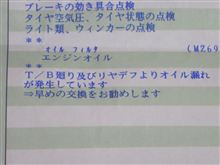 ブレーキの効き具合点検
タイヤ空気圧、タイヤ状態の点検
ライト類、ウィンカーの点検
**
オイル フィルタ (MZ69
エンジンオイル
**
T/B廻り及びリヤデフよりオイル漏れ
が発生しています
⇒早めの交換をお勧めします